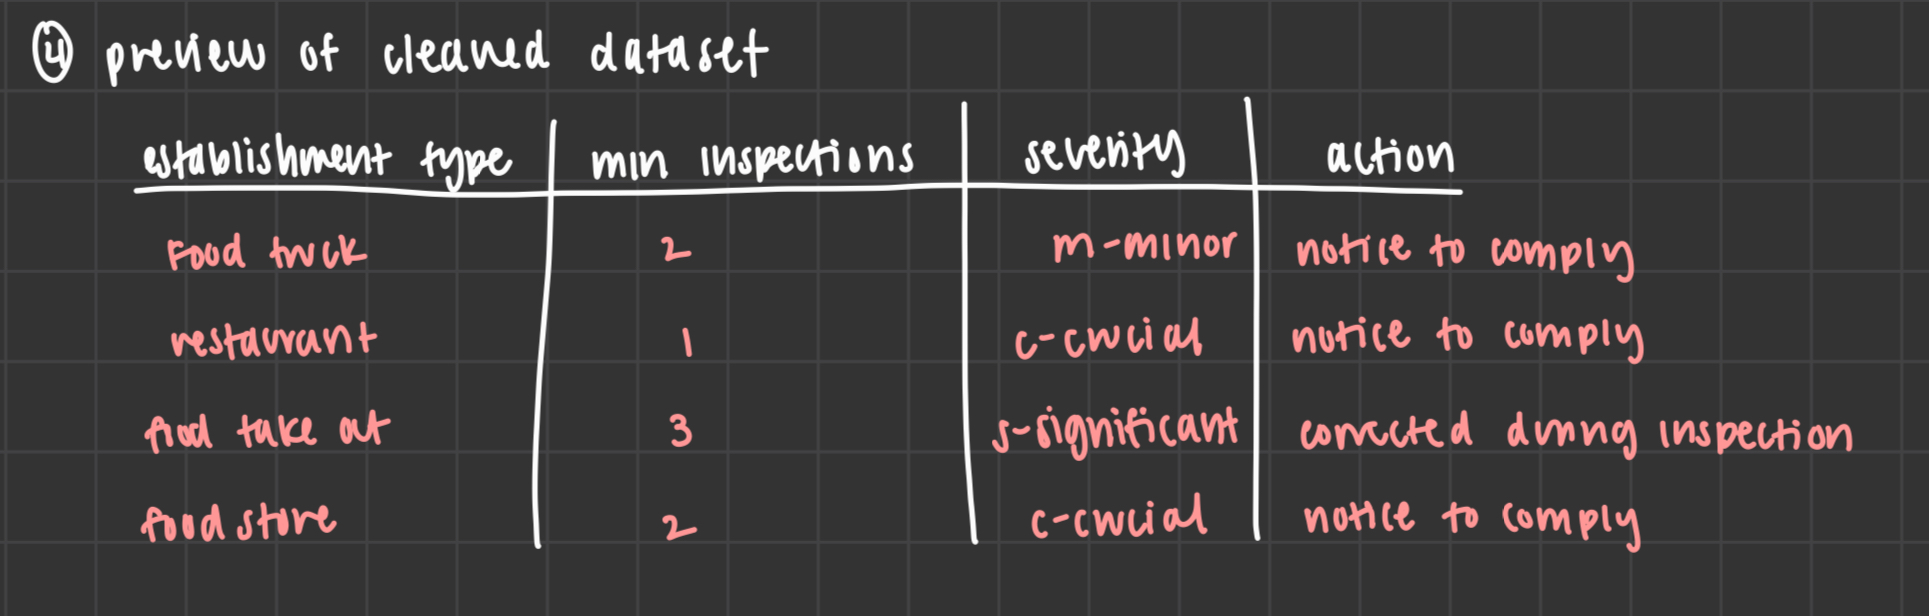 ④ preview of cleaned dataset
establishment type min inspections severity action
Food truck 2 m-minor notice to comply
restaurant 1 c-crucial notice to comply
food take out 3 s-significant corrected during inspection
food store 2 c-crucial notice to comply